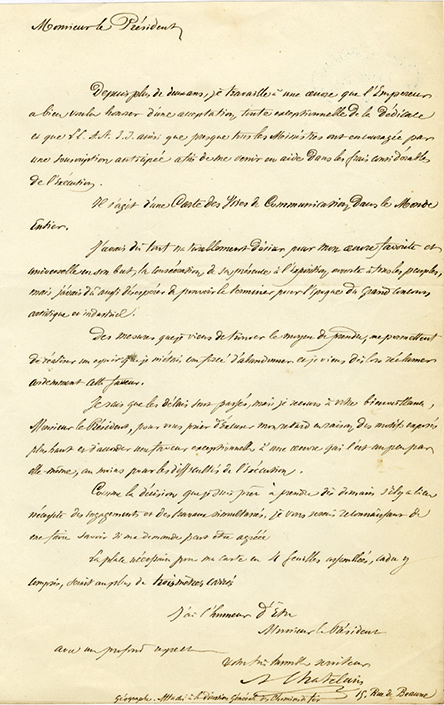 Monsieur le Président
Depuis plus de deux ans, je travaille à une œuvre que l'Empereur
a bien voulu honorer d'une acceptation, toute exceptionnelle de la dédicace
et que LL. A.A. I.I. ainsi que presque tous les Ministres ont encouragée par
une souscription anticipée afin de me venir en aide dans les frais considérables
de l'exécution.
Il s'agit d'une Carte des Voies de Communication, Dans le Monde
Entier.
J'avais dû tout naturellement désirer pour mon œuvre
universelle en son but, la consécration de sa présence à l'exposition ouverte à tous les peuples,
mais j'avais dû aussi désespérer de pouvoir la terminer pour l'époque du Grand Concours
artistique et industriel.
Des mesures que je viens de trouver le moyen de prendre, me permettent
de réaliser un espoir que je m'étais vu forcé d'abandonner et je viens dès lors réclamer
ardemment cette faveur.
Je sais que les délais sont passés, mais je recours à votre bienveillance,
Monsieur le Président, pour vous prier d'excuser mon retard en raison des motifs exposés
plus haut et d'accorder une faveur exceptionnelle à une œuvre qui l'est un peu par
elle-même, au moins pour les difficultés de l'exécution.
Comme la décision que je suis prêt à prendre dès demain s'il y a lieu
nécessite des engagements et des travaux simultanés, je vous serais reconnaissant de
me faire savoir si ma demande peut être agréée
La place nécessaire pour ma carte en 4 feuilles assemblées, cadre y
compris, serait au plus de trois mètres carrés
J'ai l'honneur d'Être
Monsieur le Président
avec un profond respect
votre très humble serviteur
A Chatelain
15, Rue de Beaune
Géographe, Attaché à la direction Générale des Chemins de fer